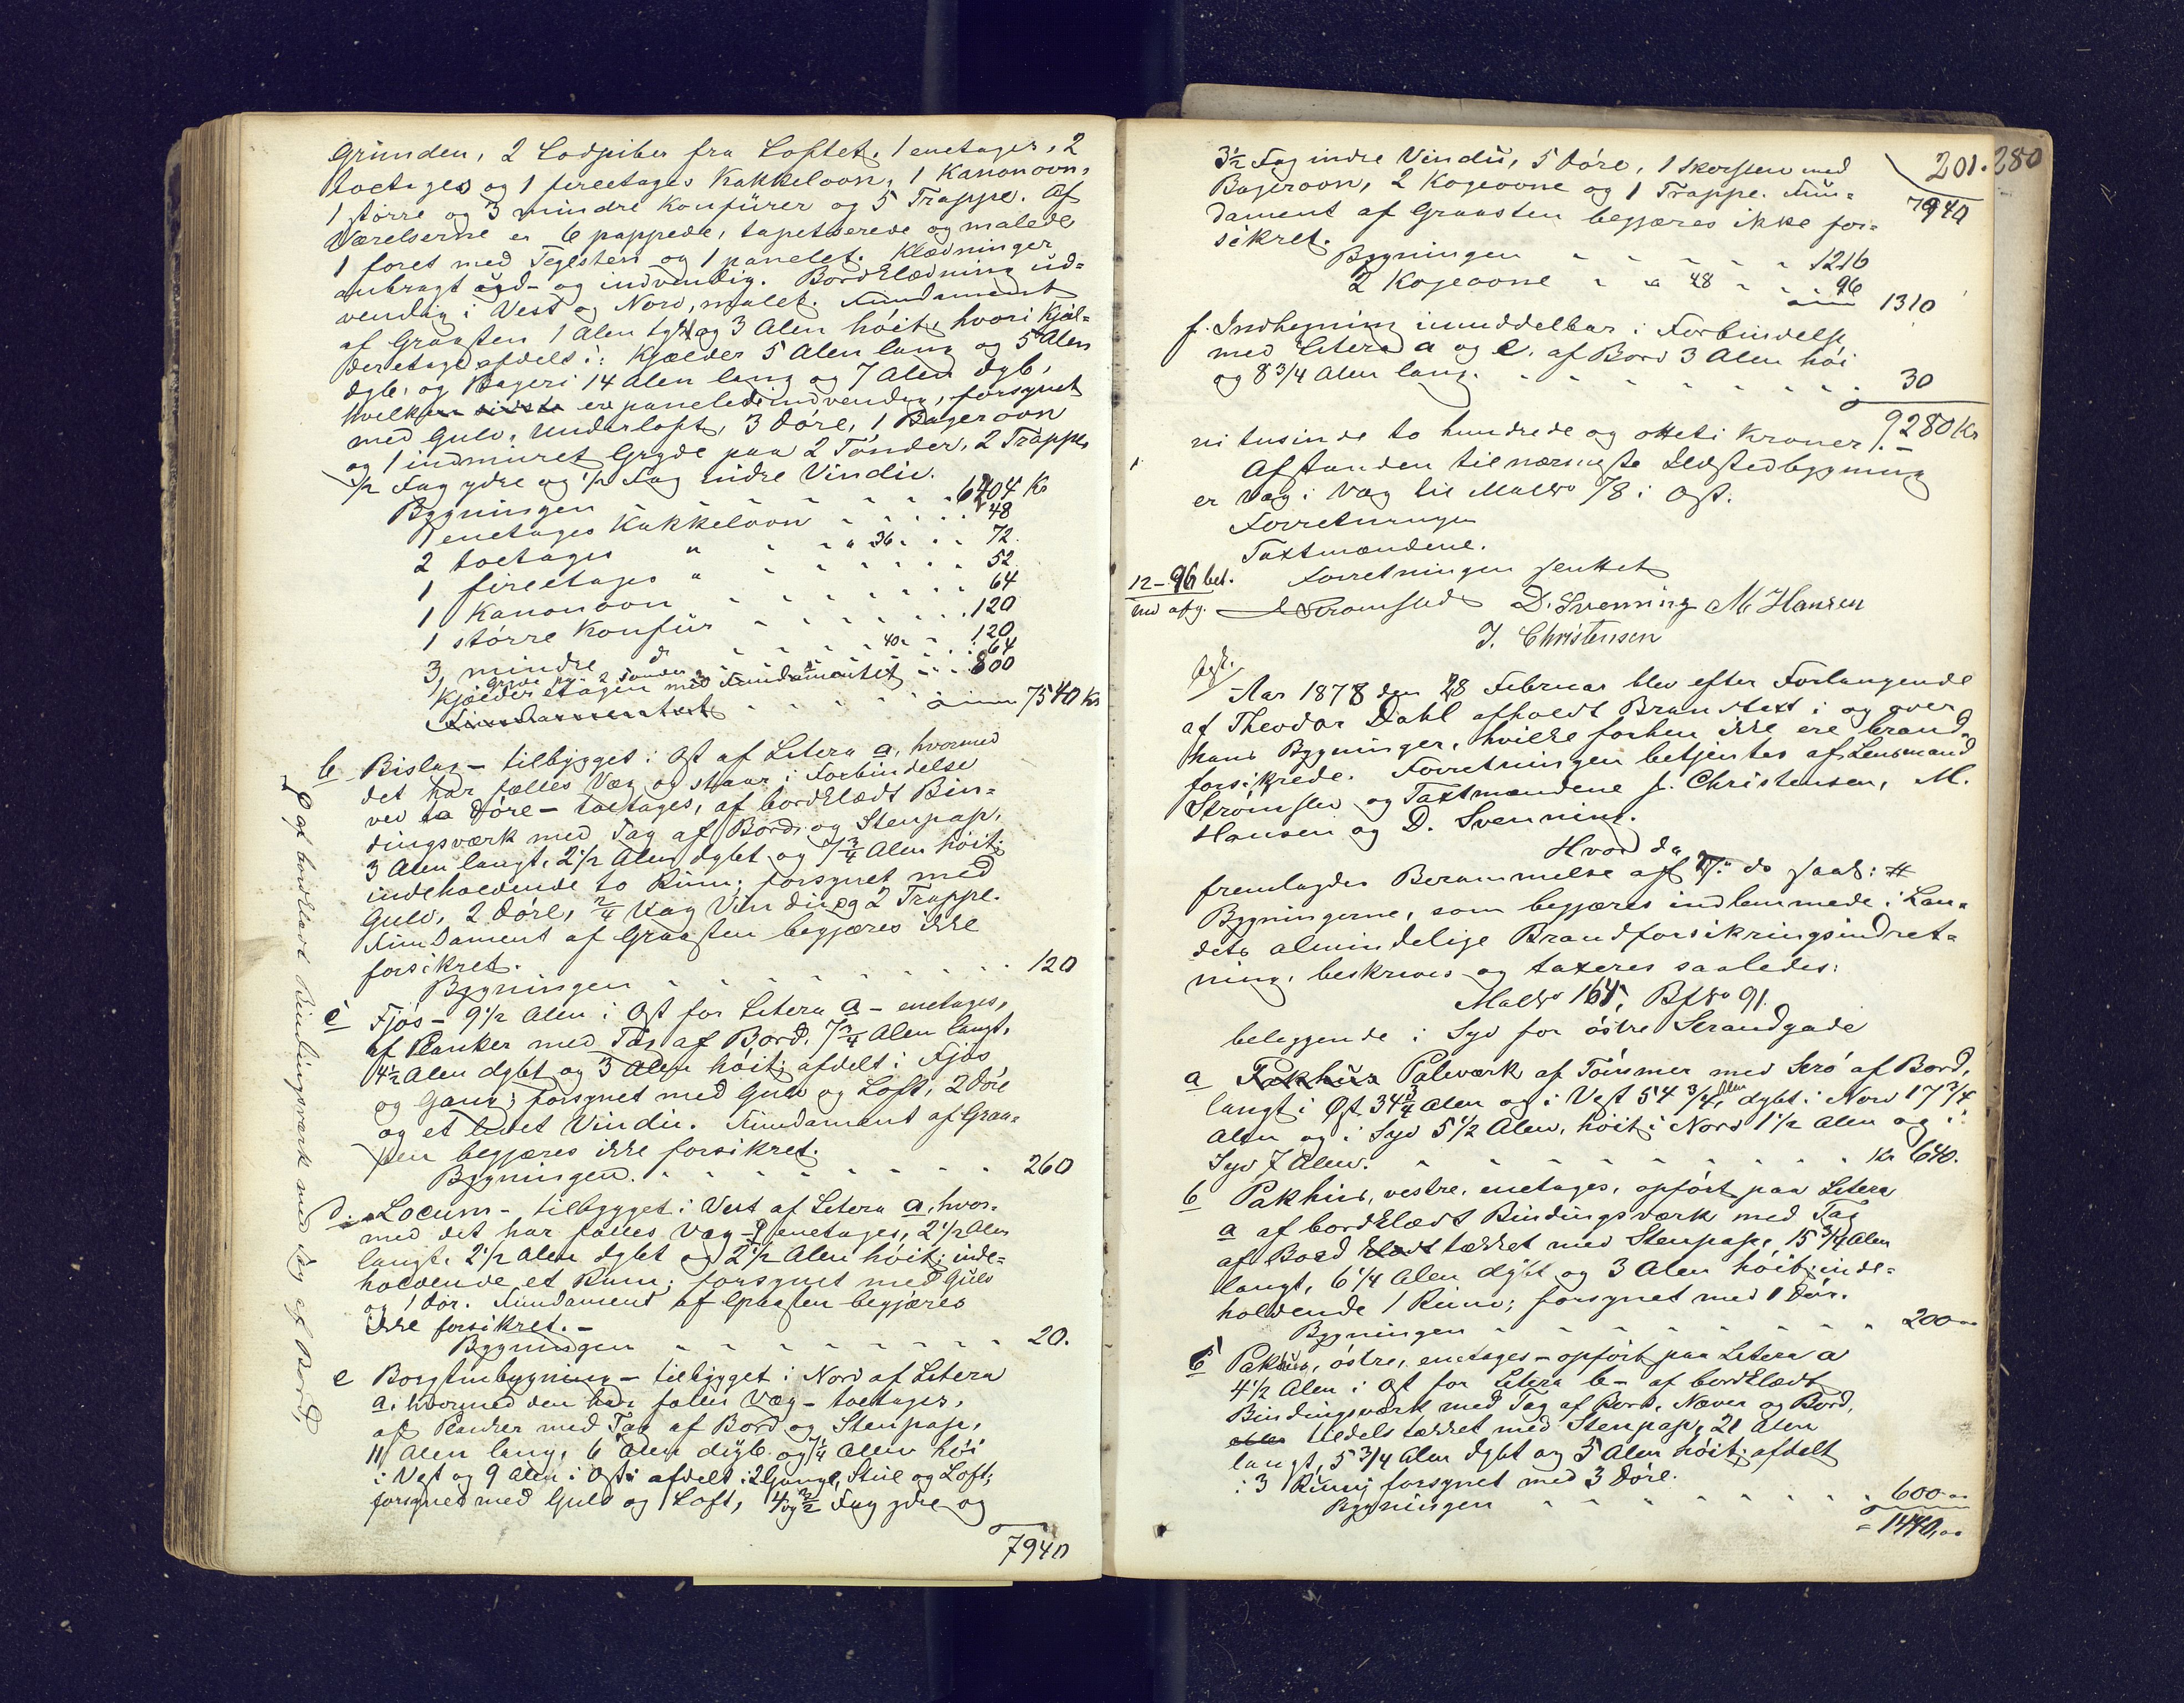 Grunden, 2 Lodpiber fra Loftet. 1 enetages, 2
toetages og 1 fireetages Kakkelovn, 1 Kanonovn,
1 större og 3 mindre Konfürer og 5 Trappe. Af
Værelserne er 6 pappede, tapetserede og malede
1 foret med Teglsten og 1 panelet. Klædninger
anbragt ud- og indvendig. Bordklædning ud-
vendig i Vest og Nord, malet. Fundament
af Graasten 1 Alen tykt og 3 Alen höit, hvori Kjæl-
deretage afdelt i: Kjælder 5 Alen lang og 5 Alen
dyb, og Bageri 14 Alen lang og 7 Alen dyb,
hvilken sidste er panelet indvendig, forsynet
med Gulv, Underloft, 3 Döre, 1 Bagerovn
og 1 indmuret Gryde paa 2 Tönder, 2 Trappe,
1/2 Fag ydre og 1/2 Fag indre Vindu.
Bygningen 6204 Kr
1 enetages Kakkelovn 48
2 toetages " " 36 72.
1 fireetages " 52
1 Kanonovn 64
1 större Konfür 120
3 mindre do 40 120
1 Gryde paa 2 Tönder 64
Kjælderetagen med Fundamentet 800
Fundamentet 7540 Kr
b Bislag - tilbygget i Öst af Litera a, hvormed
det har fælles Væg og staar i Forbindelse
ved to Döre - toetages, af bordklædt Bin-
dingsværk med Tag af Bord og Stenpap,
3 Alen langt, 2 1/2 Alen dybt og 7 3/4 Alen höit;
indeholdende to Rum; forsynet med
Gulv, 2 Döre, 2/4 Fag Vindu og 2 Trappe.
Fundament af Graasten begjæres ikke
forsikret.
Bygningen 120
c Fjös - 9 1/2 Alen i Öst for Litera a - enetages,
af Planker med Tag af Bord, 7 3/4 Alen langt,
4 1/2 Alen dybt og 3 Alen höit; afdelt i Fjös
og Gang; forsynet med Gulv og Loft, 2 Döre
og et lidet Vindu. Fundament af Graa-
sten begjæres ikke forsikret.
Bygningen. 260
d. Locum - tilbygget i Vest af Litera a, hvor-
med det har fælles Væg - enetages, 2 1/2 Alen
langt, 2 1/2 Alen dybt og 2 1/2 Alen höit; inde-
holdende et Rum; forsynet med Gulv
og 1 Dör. Fundament af Graasten begjæres
ikke forsikret. -
Bygningen 20.
e Borgstuebygning - tilbygget i Nord af Litera
a, hvormed den har fælles Væg - toetages,
af Planker med Tag af Bord og Stenpap,
11 Alen lang, 6 Alen dyb og 7 1/4 Alen höi
i Vest og 9 Alen i Öst; afdelt i 2 Gange, Stue og Loft;
forsynet med Gulv og Loft, 4 og 2/2 Fag ydre og
7940
af bordklædt Bindingsværk med Tag af Bord,
201. 280
3 1/2 Fag indre Vindu, 5 Döre, 1 Skorsten med
Bagerovn, 2 Kogeovne og 1 Trappe. Fun-
dament af Graasten begjæres ikke for-
sikret.
7940
Bygningen 1216
2 Kogeovne " a 48 96
1310
f. Indhegning umiddelbar i Forbindelse
med Litera a og e, af Bord 3 Alen höi
og 8 3/4 Alen lang. 30
9280 Kr
ni tusinde to hundrede og otteti Kroner.
Afstanden til nærmeste Ildstedbygning
er Væg i Væg til Matr No 78 i Öst.
Forretningen
Taxtmændene.
Forretningen sluttet
12-96 bet.
ind afg.
Strömsted D. Svenning M Hansen
J. Christensen
Aar 1878 den 28 Februar blev efter Forlangende
af Theodor Dahl afholdt Brandtaxt i og over
hans Bygninger, hvilke forhen ikke ere brand-
forsikrede. Forretningen betjentes af Lensmand
Strömsted og Taxtmændene J. Christensen, M.
Hansen og D. Svenning.
Hvorda
fremlagdes Berammelse af 27. ds saal: #
Bygningerne, som begjæres indlemmede i Lan-
dets almindelige Brandforsikringsindret-
ning, beskrives og taxeres saaledes:
Matr No 164, Bf No 91.
beliggende i Syd for östre Strandgade
a Pakhus Paleværk af Tömmer med Stró af Bord,
langt i Öst 34 3/4 Alen og i Vest 54 3/4 Alen, dybt i Nord 17 3/4
Alen og i Syd 5 1/2 Alen, höit i Nord 1 1/2 Alen og i
Syd 7 Alen. Kr 640.
b Pakhus, vestre, enetages, opfört paa Litera
a af bordklædt Bindingsværk med Tag
af Bord klædt tækket med Stenpap, 15 3/4 Alen
langt, 6 1/4 Alen dybt og 3 Alen höit; inde-
holdende 1 Rum; forsynet med 1 Dör.
Bygningen 200
c Pakhus, östre, enetages - opfört paa Litera a
4 1/2 Alen i Öst for Litera b - af bordklædt
Bindingsværk med Tag af Bord, Næver og Bord,
tildels tækket med Stenpap, 21 Alen
langt, 5 3/4 Alen dybt og 5 Alen höit; afdelt
i 3 Rum; forsynet med 3 Döre.
Bygningen 600
1440,00